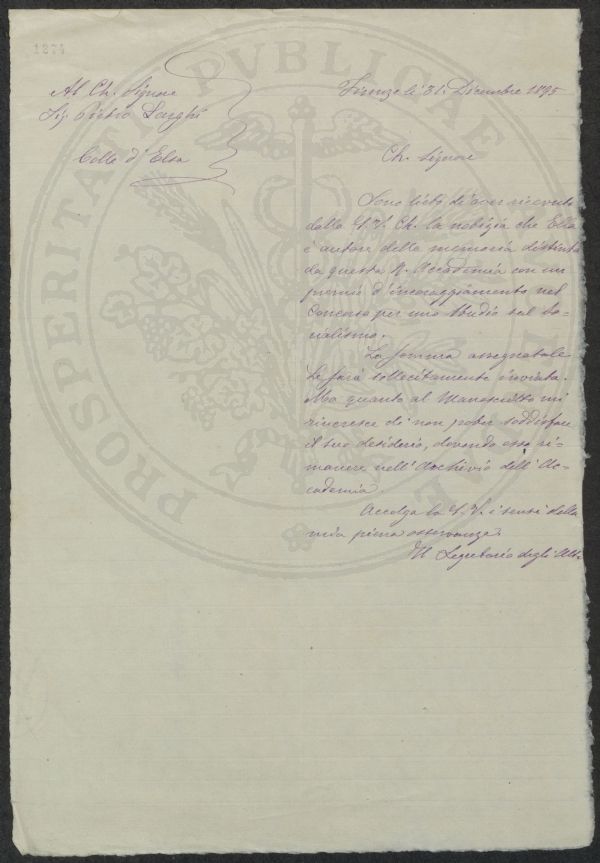 1874
PROSPERITATI PVBLICAE
Al Ch. Signore
Sig. Pietro
Colle d'Elsa
Firenze li 31. Dicembre 1895
Ch. Signore
Sono lieto di aver ricevuto
dalla S. V. Ch. la notizia che Ella
è autore della memoria distinta
da questa R. Accademia con un
premio d'incoraggiamento nel
Concorso per uno studio sul So-
cialismo.
La somma assegnatale
Le sarà sollecitamente inviata.
Ma quanto al Manoscritto mi
rincresce di non poter soddisfare
il suo desiderio, dovendo esso ri-
manere nell'Archivio dell'Ac-
cademia.
Accolga la S. V. i sensi della
mia piena osservanza.
Il Segretario degli Atti